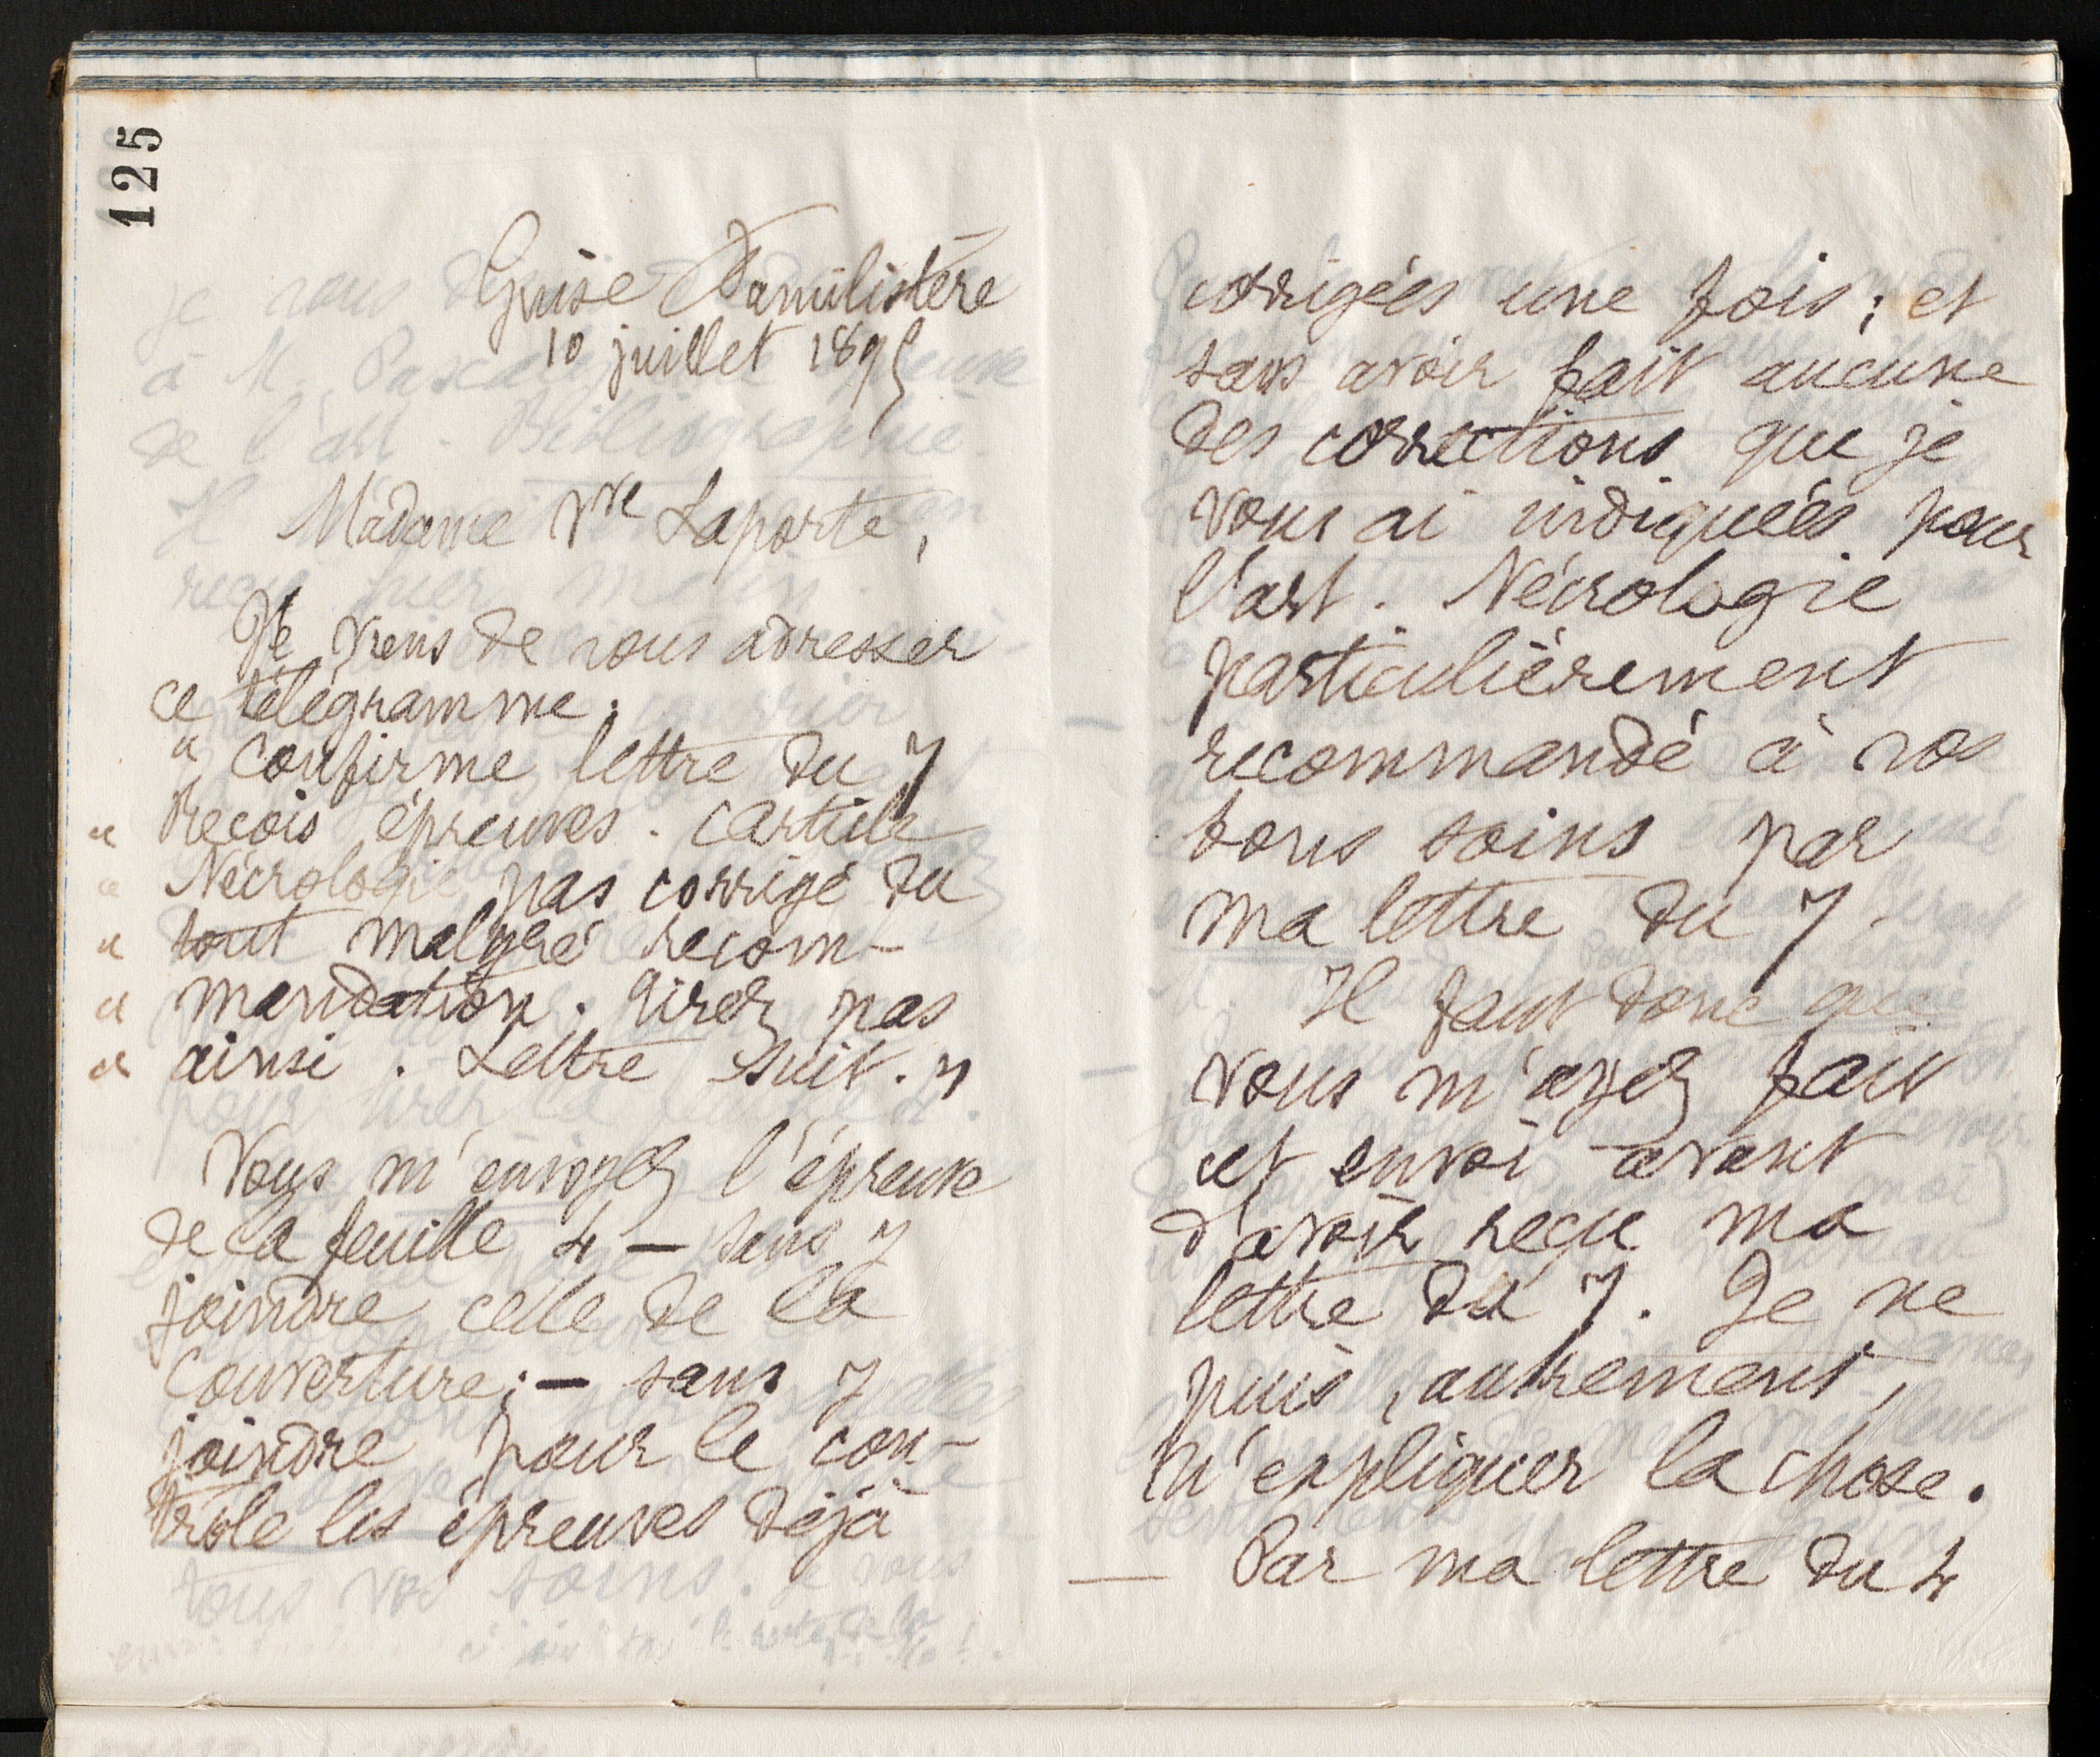 125
Guise Familistère
10 juillet 1895
Madame Vve Laporte,
Je viens de vous adresser
ce télégramme.
" Confirme lettre du 7
" Reçois épreuves. l'article
" Nécrologie pas corrigé du
" tout malgré recom-
" mandation. Tirez pas
" ainsi. Lettre suit. "
Vous m'envoyez l'épreuve
de la feuille 4 — sans y
joindre celle de la
couverture; — sans y
joindre pour le con-
trôle les épreuves déjà
corrigées une fois; et
sans avoir fait aucune
des corrections que je
vous ai indiquées pour
l'art. Nécrologie
particulièrement
recommandé à vos
bons soins par
ma lettre du 7.
Il faut donc que
vous m'ayez fait
cet envoi avant
d'avoir reçu ma
lettre du 7. Je ne
puis, autrement,
m'expliquer la chose.
— Par ma lettre du 4